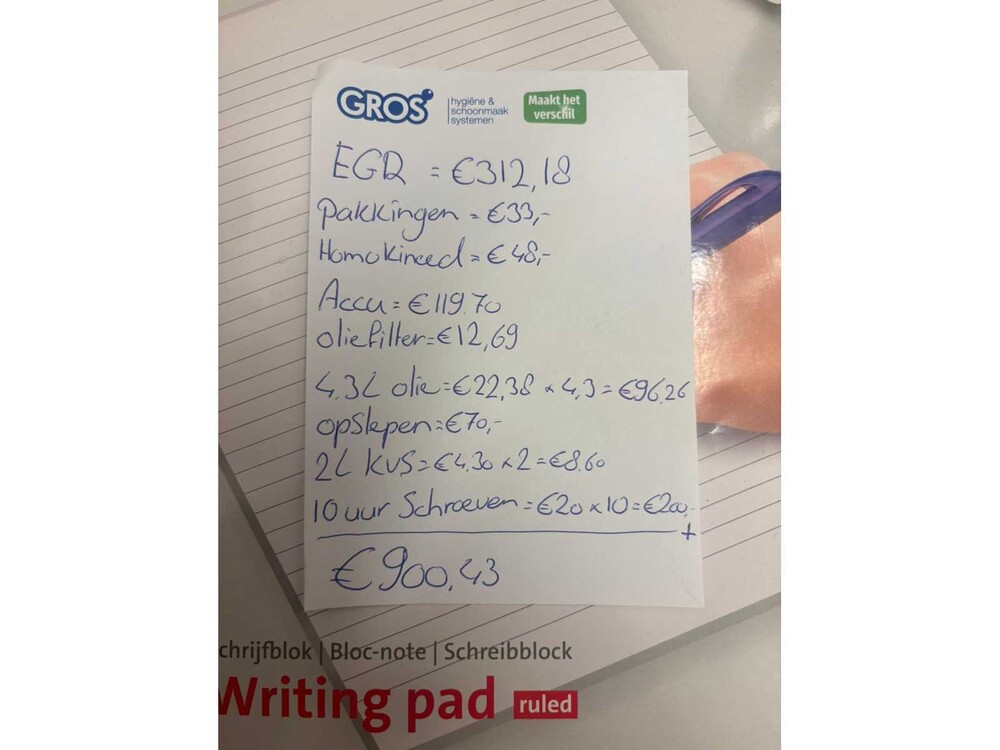 GROS
hygiëne &
schoonmaak
systemen
Maakt het
verschil
EGR = €312,18
pakkingen = €33,-
Homokineed = €48,-
Accu = €119.70
oliefilter = €12,69
4.3L olie = €22,38 x 4,3 = €96,26
opslepen = €70,-
2L KVS = €4.30 x 2 = €8.60
10 uur Schroeven = €20 x 10 = €200,-
+
€900,43
chrijfblok | Bloc-note | Schreibblock
Writing pad ruled